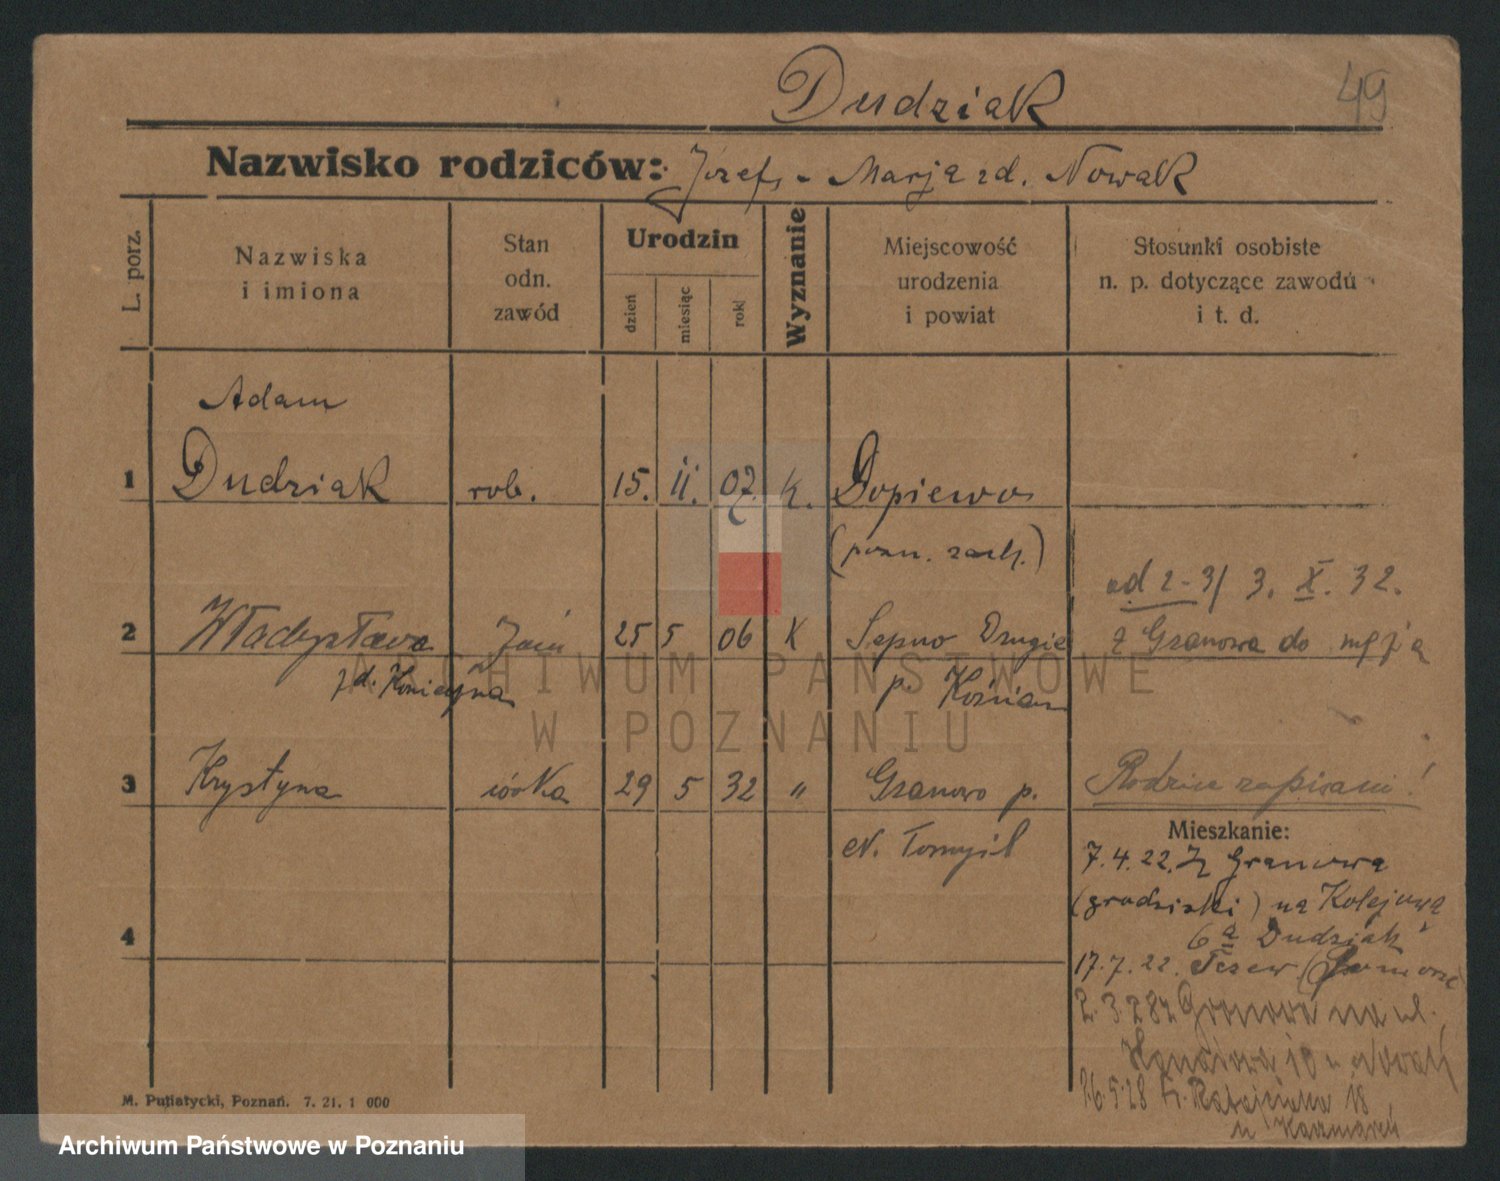 Dudziak
49
Nazwisko rodziców: Józef - Marja zd. Nowak
L. porz.
Nazwiska
i imiona
Stan
odn.
zawód
Urodzin
dzień
miesiąc
rok
Wyznanie
Miejscowość
urodzenia
i powiat
Stosunki osobiste
n. p. dotyczące zawodu
i t. d.
Adam
1 Dudziak rob. 15. 11. 07. k. Dopiewo
(pozn. zach.)
od 2-3/ 3. X. 32.
2 Władysława 25 5 06 K Sepno Drugie z Granowa do męża
zd. Konieczna p. Kościan
3 Krystyna córka 29 5 32 " Granowo p. Rodzice zapisani!
N. Tomyśl
Mieszkanie:
7.4.22. Z Granowa
(grodziski) na Kolejową
6a Dudziak
4
17.7.22. Tczew (Pomorze
2.3.28 z Granowa na ul.
10 u Nowak
26.5.28 Fr. Ratajczaka 18
u Kaczmarek
M. Putiatycki, Poznań. 7. 21. 1 000
ARCHIWUM PAŃSTWOWE
W POZNANIU
Archiwum Państwowe w Poznaniu